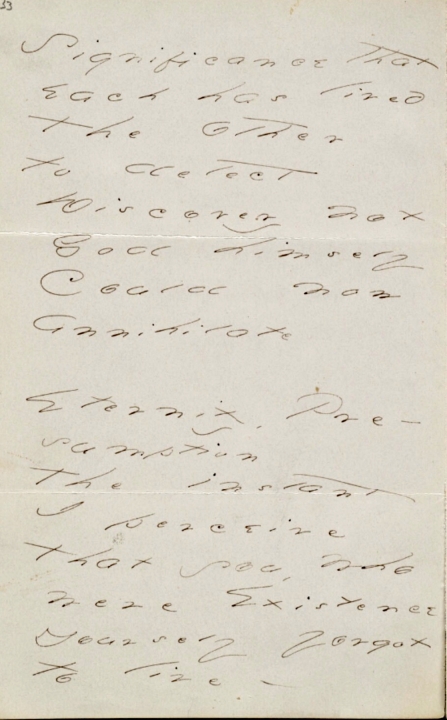 33
Significance that
each has lived
The other
to detect
Discovery not
God himself
Could now
Annihilate
Eternity, Pre-
sumption
The instant
I perceive
That you, who
were Existence
Yourself forgot
to live -